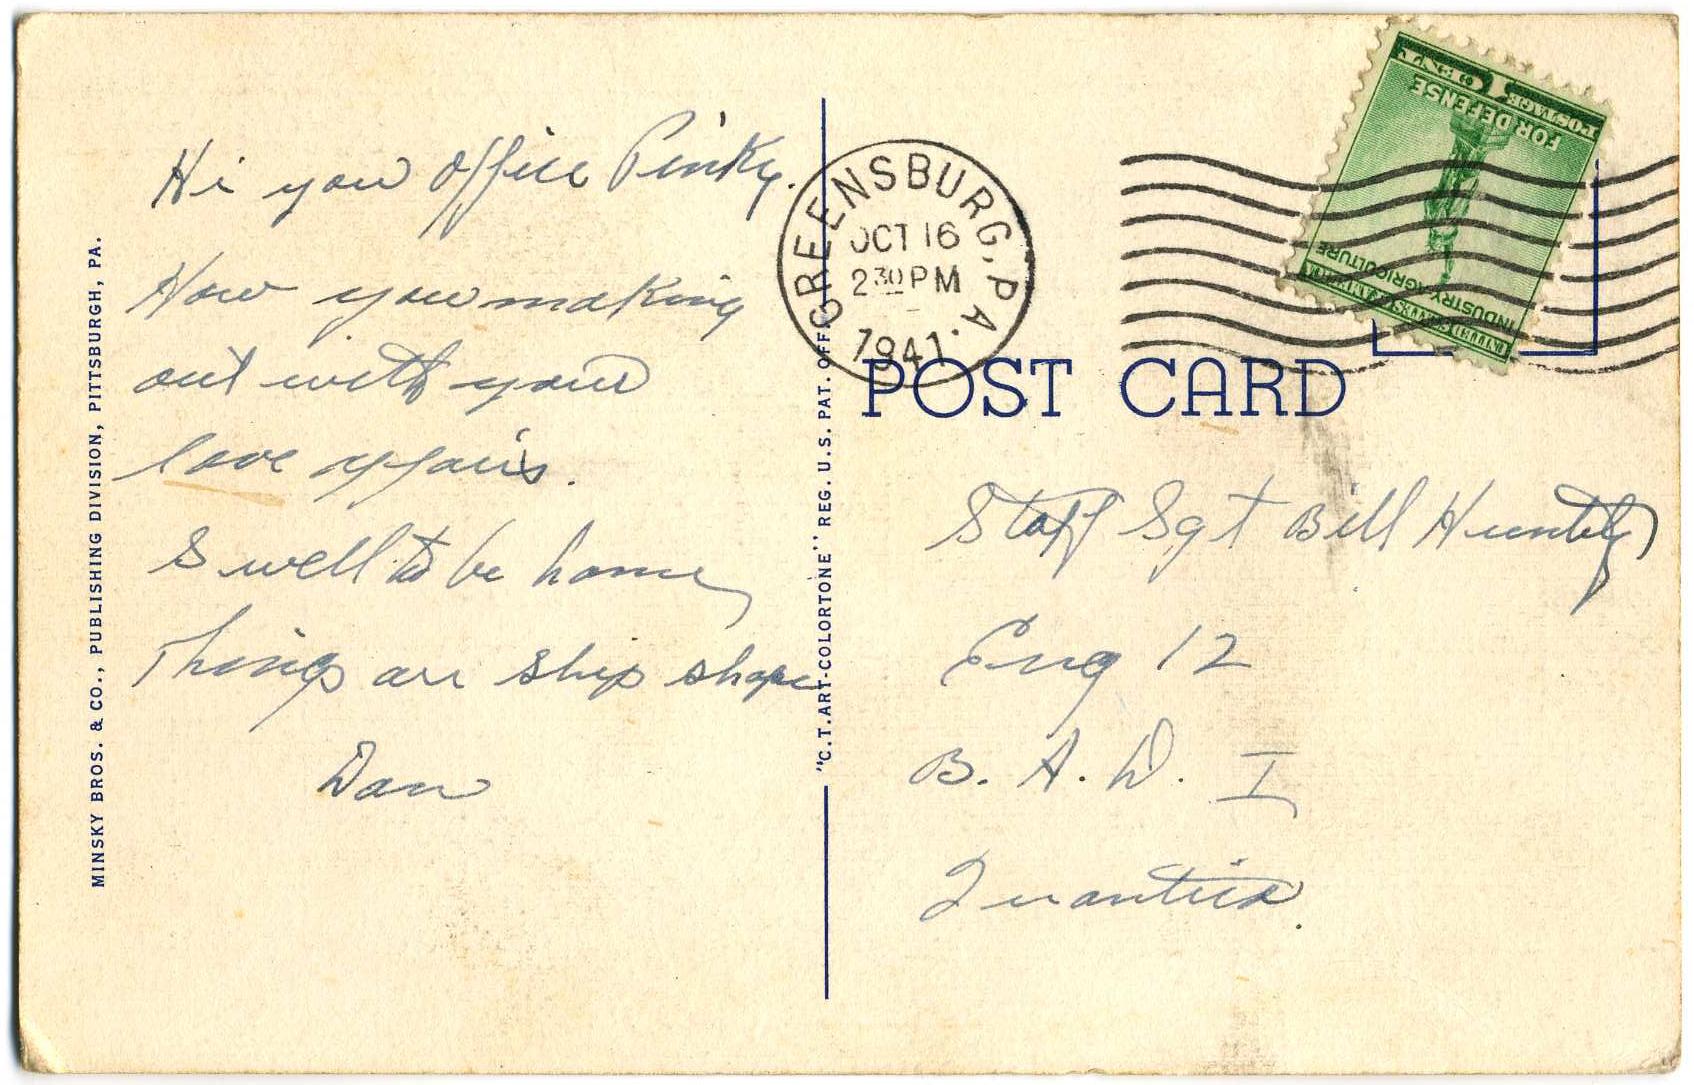 Hi you Office Pinky.
How you making
out with your
love affairs.
Swell to be home,
Things are ship shape
Dan
MINSKY BROS. & CO., PUBLISHING DIVISION, PITTSBURGH, PA.
"C.T. ART-COLORTONE" REG. U.S. PAT. OFF.
GREENSBURG, PA.
OCT 16
2 30 PM
1941
1 CENT
POSTAGE
FOR DEFENSE
INDUSTRY AGRICULTURE
POST CARD
Staff Sgt Bill Huntly
Eng 12
B. A. D. I
Quantico.